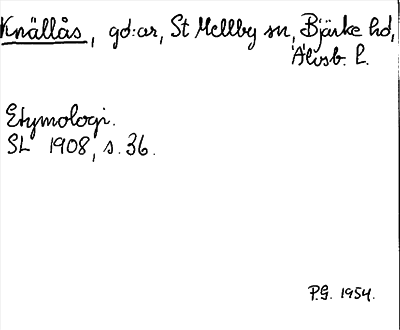 Knällås, gd:ar, St Mellby sn, Bjärke hd,
Älvsb. l.
Etymologi.
SL 1908, s. 36.
P.G. 1954.